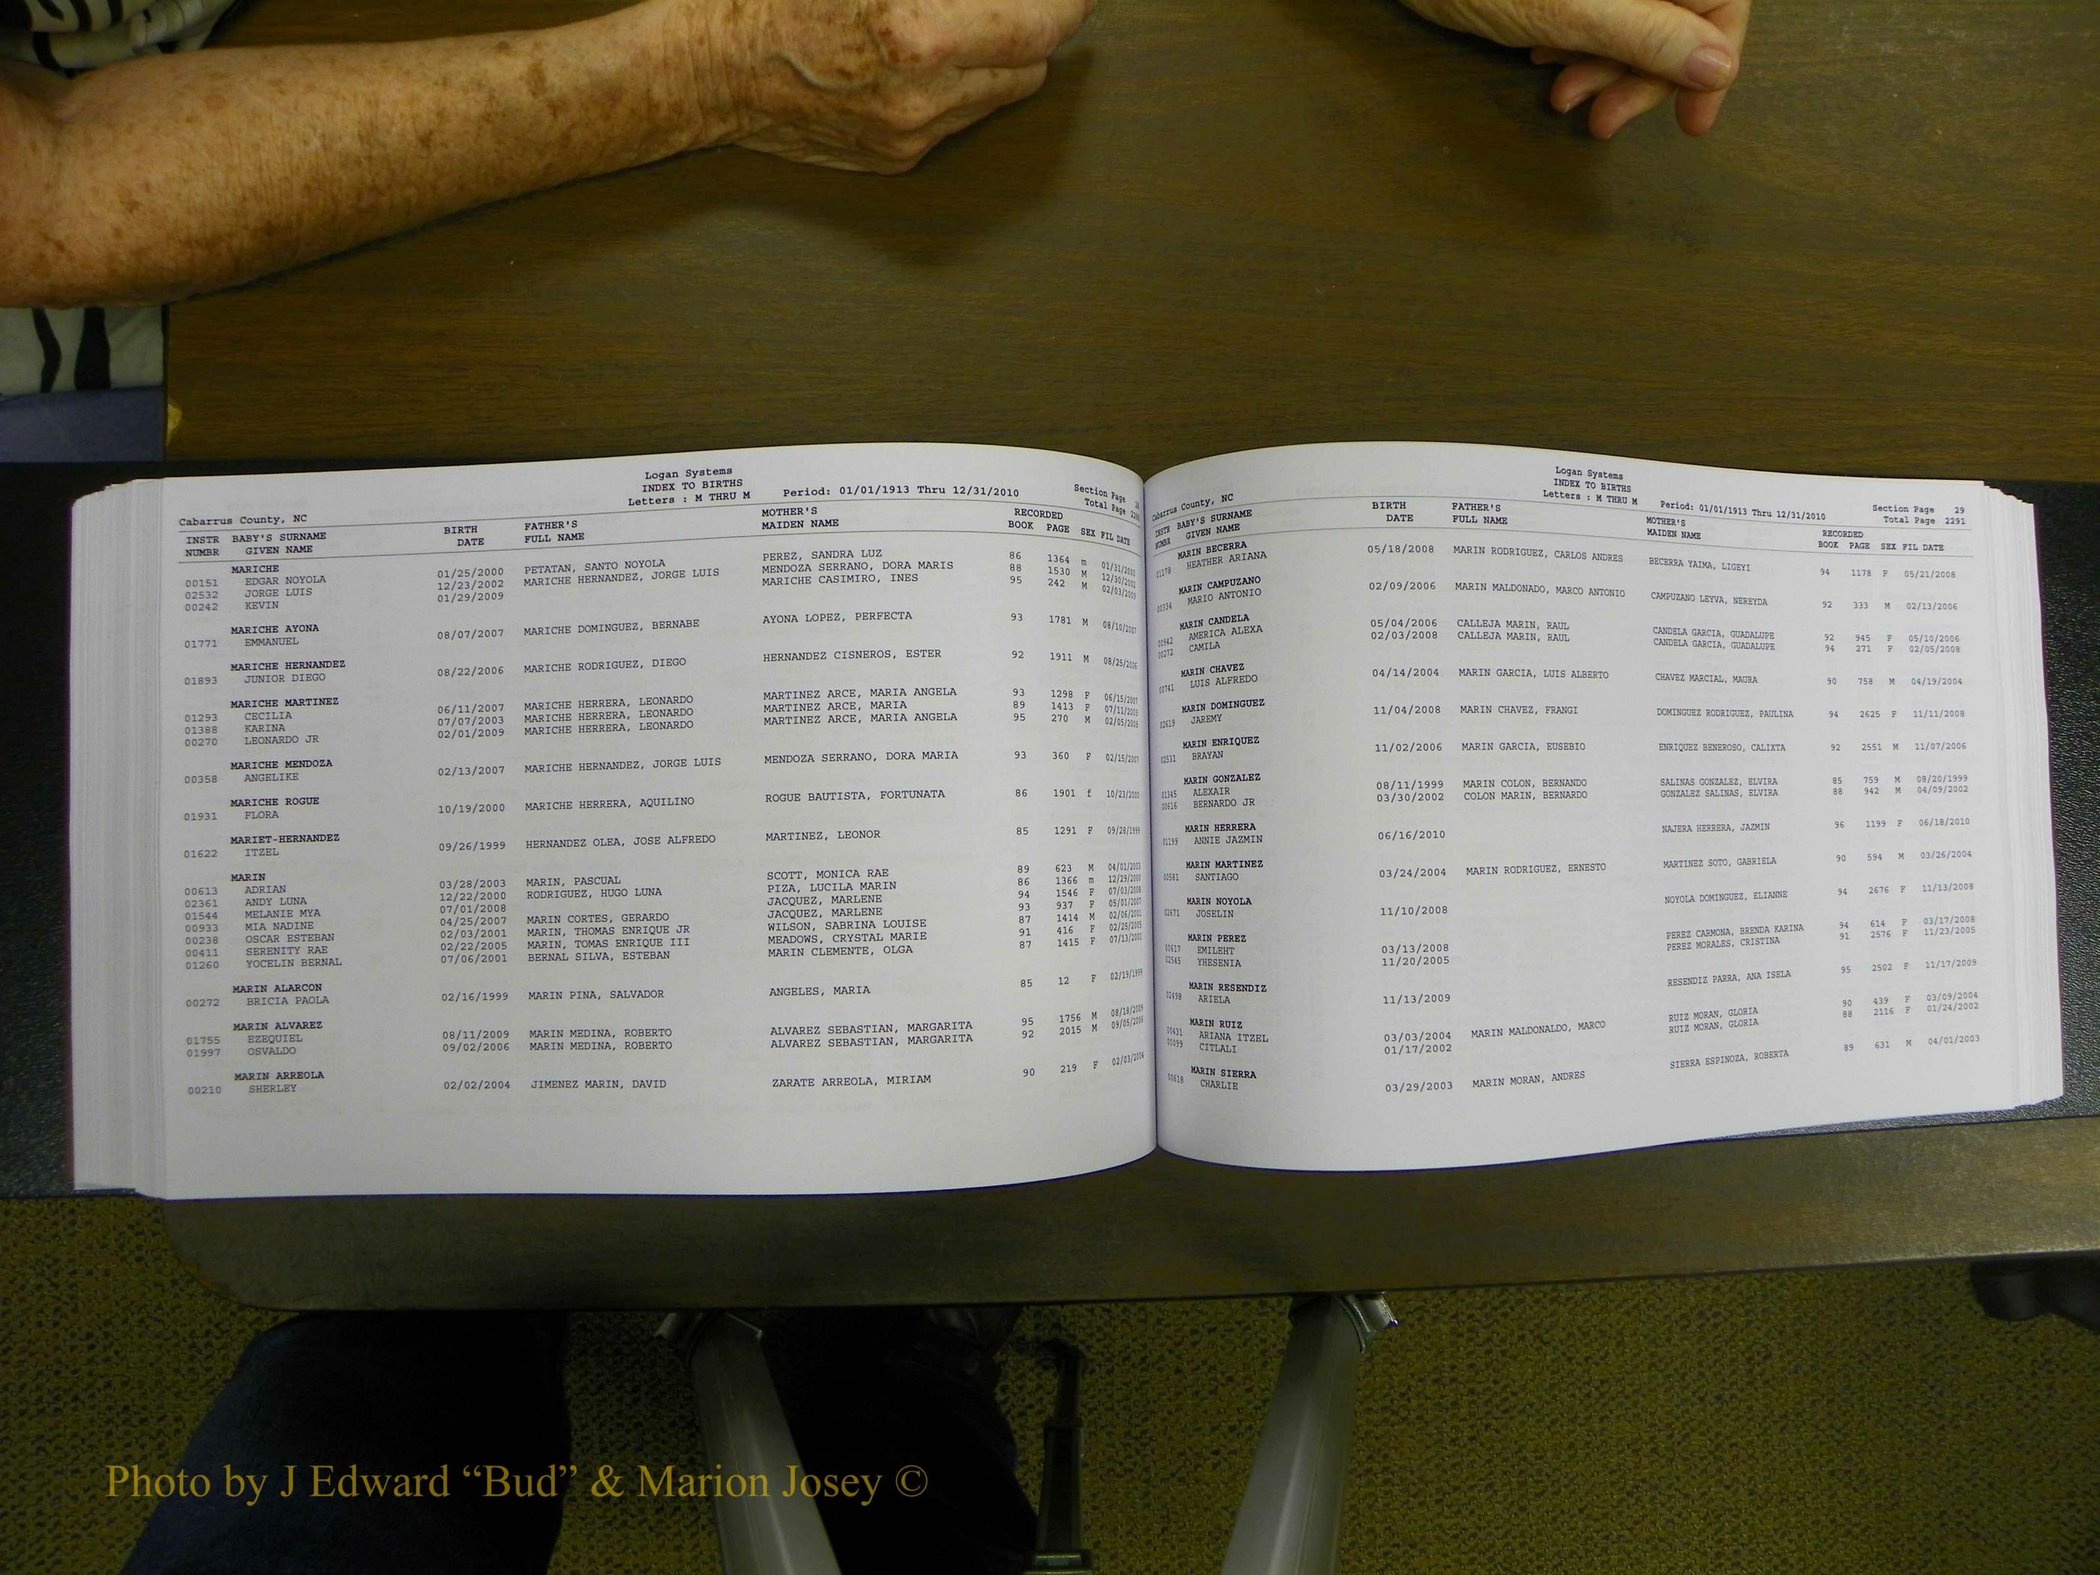 Logan Systems
INDEX TO BIRTHS
Letters : M THRU M Period: 01/01/1913 Thru 12/31/2010 Section Page 28
Cabarrus County, NC Total Page
INSTR BABY'S SURNAME BIRTH FATHER'S MOTHER'S RECORDED
NUMBR GIVEN NAME DATE FULL NAME MAIDEN NAME BOOK PAGE SEX FIL DATE
MARICHE
00151 EDGAR NOYOLA 01/25/2000 PETATAN, SANTO NOYOLA PEREZ, SANDRA LUZ 86 1364 m 01/31/2000
02532 JORGE LUIS 12/23/2002 MARICHE HERNANDEZ, JORGE LUIS MENDOZA SERRANO, DORA MARIS 88 1530 M 12/30/2002
00242 KEVIN 01/29/2009 MARICHE CASIMIRO, INES 95 242 M 02/03/2009
MARICHE AYONA
01771 EMMANUEL 08/07/2007 MARICHE DOMINGUEZ, BERNABE AYONA LOPEZ, PERFECTA 93 1781 M 08/10/2007
MARICHE HERNANDEZ
01893 JUNIOR DIEGO 08/22/2006 MARICHE RODRIGUEZ, DIEGO HERNANDEZ CISNEROS, ESTER 92 1911 M 08/25/2006
MARICHE MARTINEZ
01293 CECILIA 06/11/2007 MARICHE HERRERA, LEONARDO MARTINEZ ARCE, MARIA ANGELA 93 1298 F 06/15/2007
01388 KARINA 07/07/2003 MARICHE HERRERA, LEONARDO MARTINEZ ARCE, MARIA 89 1413 F 07/11/2003
00270 LEONARDO JR 02/01/2009 MARICHE HERRERA, LEONARDO MARTINEZ ARCE, MARIA ANGELA 95 270 M 02/05/2009
MARICHE MENDOZA
00358 ANGELIKE 02/13/2007 MARICHE HERNANDEZ, JORGE LUIS MENDOZA SERRANO, DORA MARIA 93 360 F 02/15/2007
MARICHE ROGUE
01931 FLORA 10/19/2000 MARICHE HERRERA, AQUILINO ROGUE BAUTISTA, FORTUNATA 86 1901 f 10/23/2000
MARIET-HERNANDEZ
01622 ITZEL 09/26/1999 HERNANDEZ OLEA, JOSE ALFREDO MARTINEZ, LEONOR 85 1291 F 09/28/1999
MARIN
00613 ADRIAN 03/28/2003 MARIN, PASCUAL SCOTT, MONICA RAE 89 623 M 04/01/2003
02361 ANDY LUNA 12/22/2000 RODRIGUEZ, HUGO LUNA PIZA, LUCILA MARIN 86 1366 m 12/29/2000
01544 MELANIE MYA 07/01/2008 JACQUEZ, MARLENE 94 1546 F 07/03/2008
00933 MIA NADINE 04/25/2007 MARIN CORTES, GERARDO JACQUEZ, MARLENE 93 937 F 05/01/2007
00238 OSCAR ESTEBAN 02/03/2001 MARIN, THOMAS ENRIQUE JR WILSON, SABRINA LOUISE 87 1414 M 02/06/2001
00411 SERENITY RAE 02/22/2005 MARIN, TOMAS ENRIQUE III MEADOWS, CRYSTAL MARIE 91 416 F 02/25/2005
01260 YOCELIN BERNAL 07/06/2001 BERNAL SILVA, ESTEBAN MARIN CLEMENTE, OLGA 87 1415 F 07/13/2001
MARIN ALARCON
00272 BRICIA PAOLA 02/16/1999 MARIN PINA, SALVADOR ANGELES, MARIA 85 12 F 02/19/1999
MARIN ALVAREZ
01755 EZEQUIEL 08/11/2009 MARIN MEDINA, ROBERTO ALVAREZ SEBASTIAN, MARGARITA 95 1756 M 08/18/2009
01997 OSVALDO 09/02/2006 MARIN MEDINA, ROBERTO ALVAREZ SEBASTIAN, MARGARITA 92 2015 M 09/05/2006
MARIN ARREOLA
00210 SHERLEY 02/02/2004 JIMENEZ MARIN, DAVID ZARATE ARREOLA, MIRIAM 90 219 F 02/03/2004
Logan Systems
INDEX TO BIRTHS
Letters : M THRU M Period: 01/01/1913 Thru 12/31/2010 Section Page 29
Cabarrus County, NC Total Page 2291
INSTR BABY'S SURNAME BIRTH FATHER'S MOTHER'S RECORDED
NUMBR GIVEN NAME DATE FULL NAME MAIDEN NAME BOOK PAGE SEX FIL DATE
MARIN BECERRA
01178 HEATHER ARIANA 05/18/2008 MARIN RODRIGUEZ, CARLOS ANDRES BECERRA YAIMA, LIGEYI 94 1178 F 05/21/2008
MARIN CAMPUZANO
00334 MARIO ANTONIO 02/09/2006 MARIN MALDONADO, MARCO ANTONIO CAMPUZANO LEYVA, NEREYDA 92 333 M 02/13/2006
MARIN CANDELA
00942 AMERICA ALEXA 05/04/2006 CALLEJA MARIN, RAUL CANDELA GARCIA, GUADALUPE 92 945 F 05/10/2006
00272 CAMILA 02/03/2008 CALLEJA MARIN, RAUL CANDELA GARCIA, GUADALUPE 94 271 F 02/05/2008
MARIN CHAVEZ
00741 LUIS ALFREDO 04/14/2004 MARIN GARCIA, LUIS ALBERTO CHAVEZ MARCIAL, MAURA 90 758 M 04/19/2004
MARIN DOMINGUEZ
02619 JAREMY 11/04/2008 MARIN CHAVEZ, FRANGI DOMINGUEZ RODRIGUEZ, PAULINA 94 2625 F 11/11/2008
MARIN ENRIQUEZ
02531 BRAYAN 11/02/2006 MARIN GARCIA, EUSEBIO ENRIQUEZ BENEROSO, CALIXTA 92 2551 M 11/07/2006
MARIN GONZALEZ
01345 ALEXAIR 08/11/1999 MARIN COLON, BERNANDO SALINAS GONZALEZ, ELVIRA 85 759 M 08/20/1999
00616 BERNARDO JR 03/30/2002 COLON MARIN, BERNARDO GONZALEZ SALINAS, ELVIRA 88 942 M 04/09/2002
MARIN HERRERA
01199 ANNIE JAZMIN 06/16/2010 NAJERA HERRERA, JAZMIN 96 1199 F 06/18/2010
MARIN MARTINEZ
00581 SANTIAGO 03/24/2004 MARIN RODRIGUEZ, ERNESTO MARTINEZ SOTO, GABRIELA 90 594 M 03/26/2004
MARIN NOYOLA
02671 JOSELIN 11/10/2008 NOYOLA DOMINGUEZ, ELIANNE 94 2676 F 11/13/2008
MARIN PEREZ
00617 EMILEHT 03/13/2008 PEREZ CARMONA, BRENDA KARINA 94 614 F 03/17/2008
02545 YHESENIA 11/20/2005 PEREZ MORALES, CRISTINA 91 2576 F 11/23/2005
MARIN RESENDIZ
02498 ARIELA 11/13/2009 RESENDIZ PARRA, ANA ISELA 95 2502 F 11/17/2009
MARIN RUIZ
00431 ARIANA ITZEL 03/03/2004 MARIN MALDONALDO, MARCO RUIZ MORAN, GLORIA 90 439 F 03/09/2004
00099 CITLALI 01/17/2002 RUIZ MORAN, GLORIA 88 2116 F 01/24/2002
MARIN SIERRA
00618 CHARLIE 03/29/2003 MARIN MORAN, ANDRES SIERRA ESPINOZA, ROBERTA 89 631 M 04/01/2003
Photo by J Edward “Bud” & Marion Josey ©